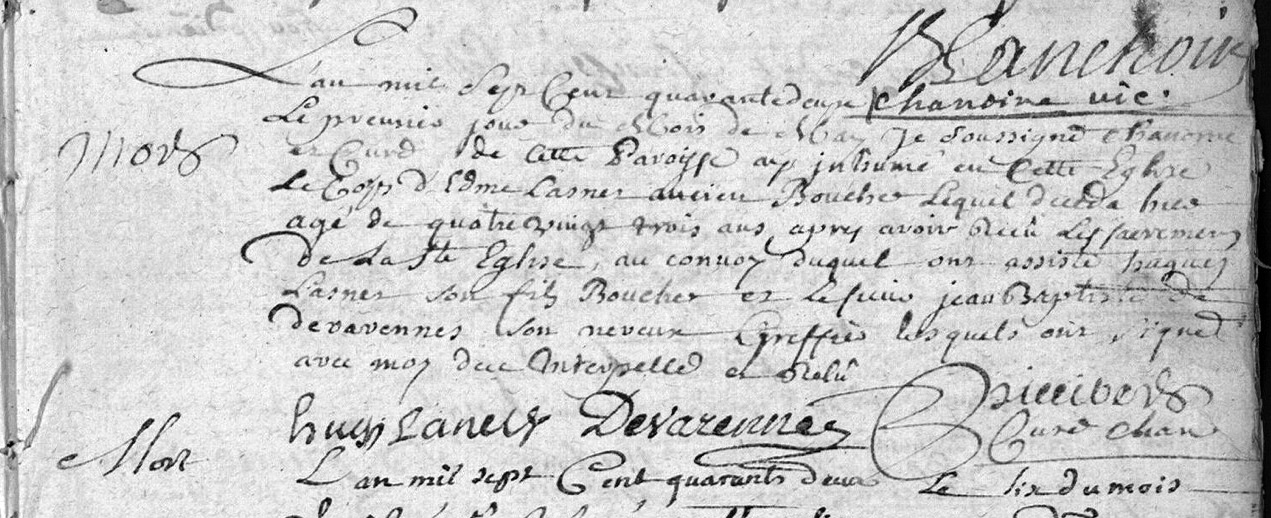 Blanchoin
L'an mil sept Cent quarantedeuxe chanoine vic.
Mors
Le premier jour du Mois de May Je soussigné chanoine
et Curé de Cette Paroisse ay inhumé en Cette Eglise
Le Corps d'Edme Lasner ancien Boucher Lequel deceda hier
agé de quatrevingt trois ans, apres avoir Reçû Les sacremens
de La Ste Eglise, au convoy duquel ont assisté hugues
Lasner son fils Boucher et Le sieur jean Baptiste de
devarennes son neveux Greffier lesquels ont signé
avec moy de ce Interpellé et Relû
hugs Laners Devarennes
Curé Chan
Mort
L'an mil sept Cent quarante deux Le six du mois